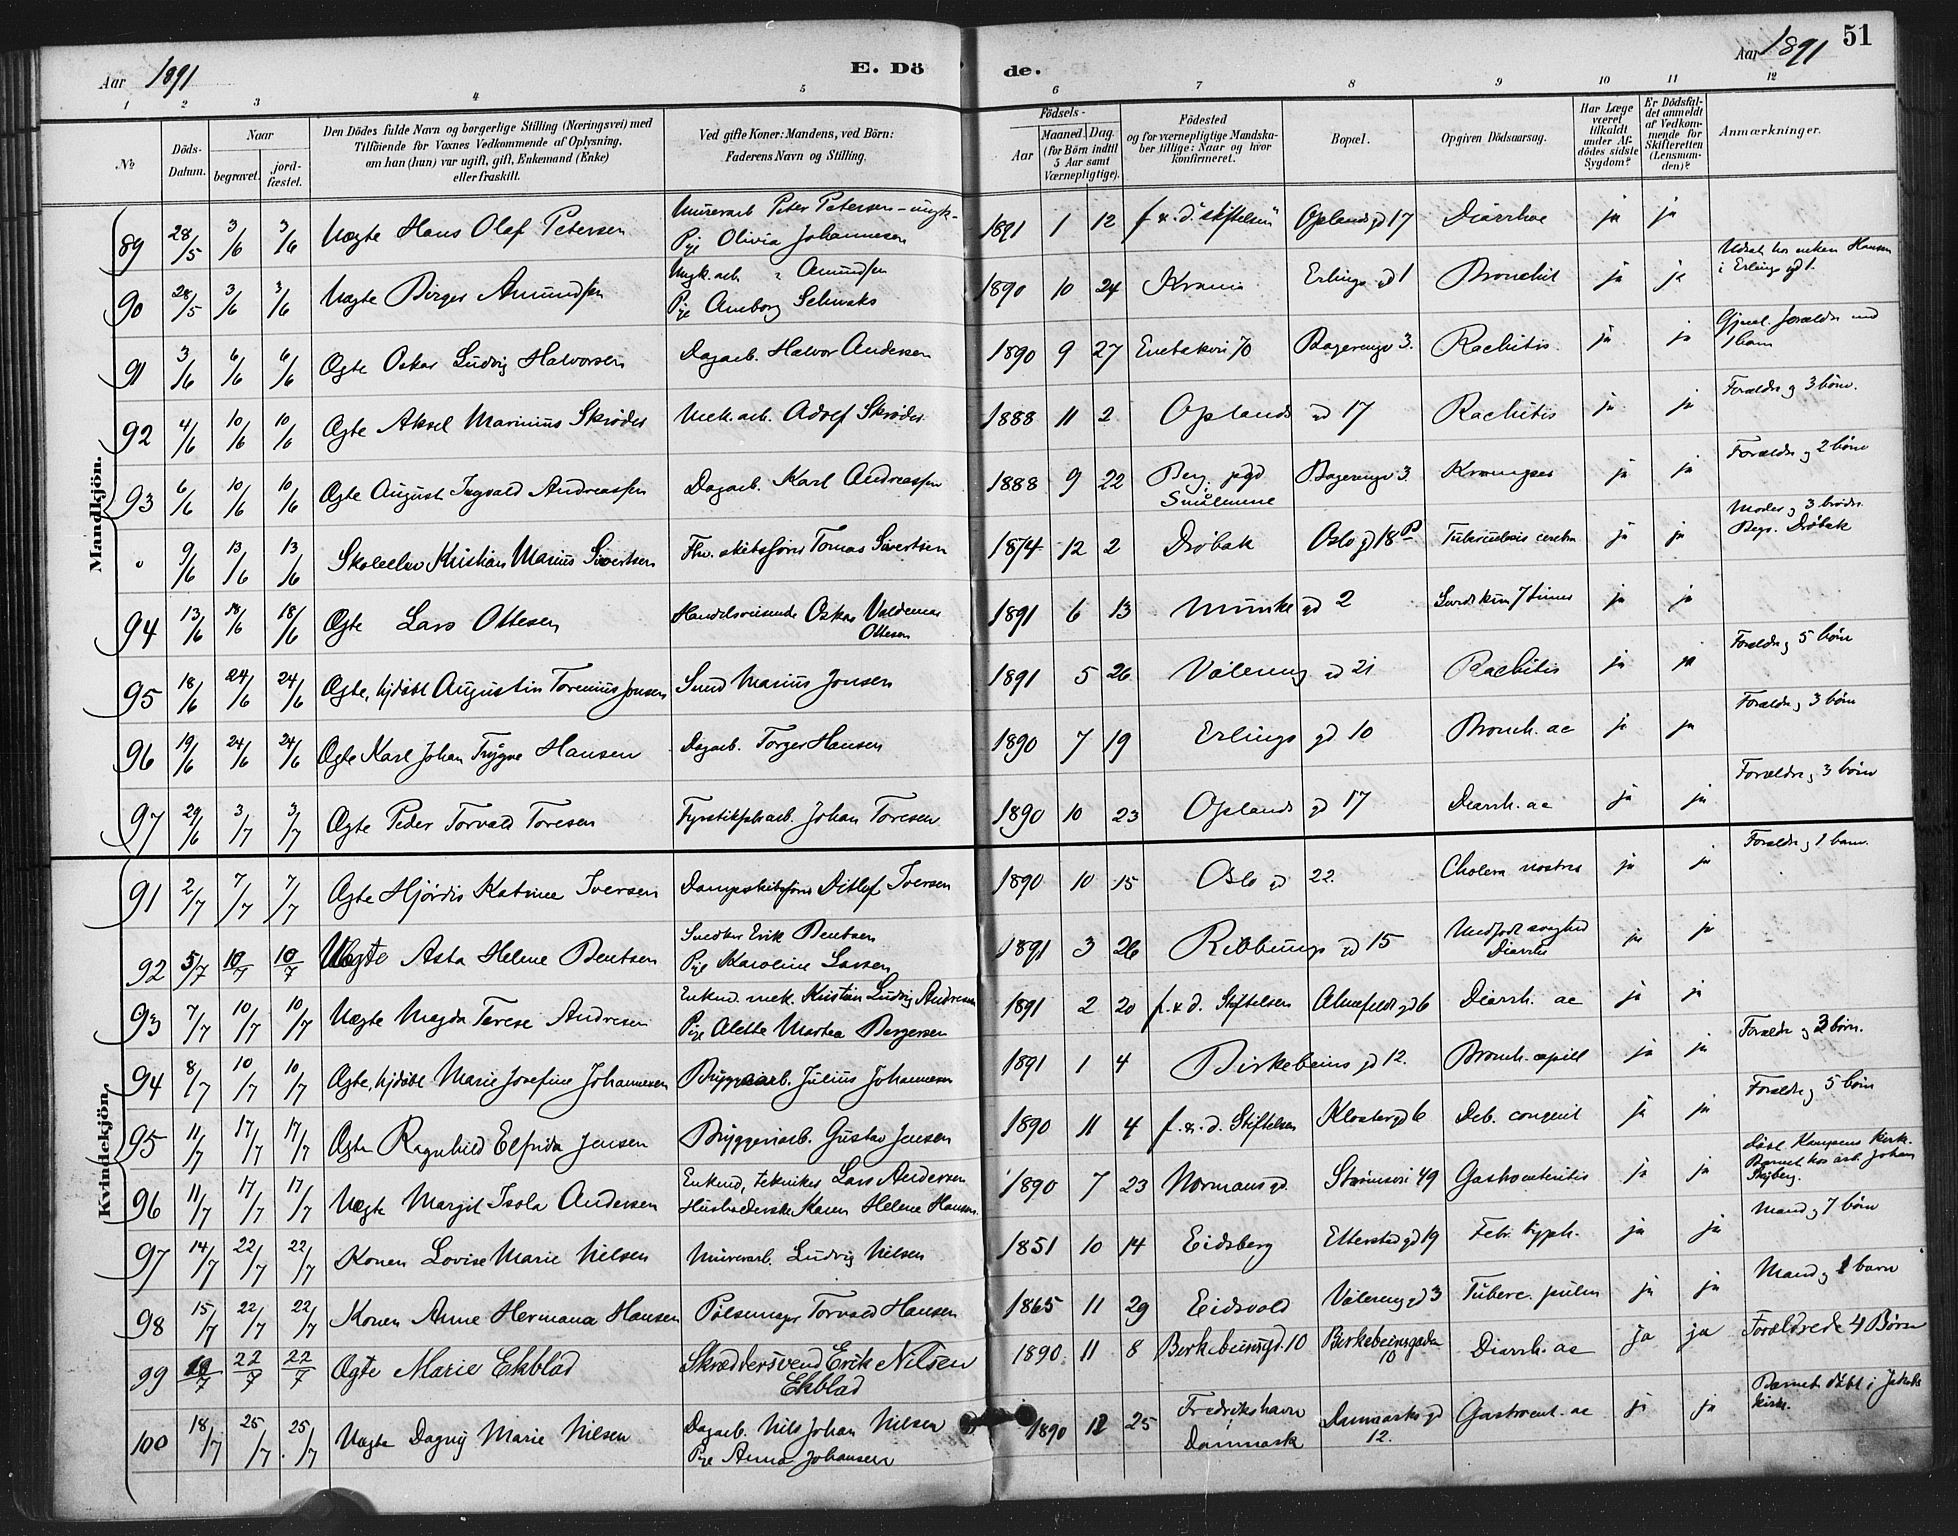 Aar 1891
E. Dö de.
Aar 1891 51
1 2 3 4 5 6 7 8 9 10 11 12
No.
Döds-Datum.
Naar begravet. jordfæstet.
Den Dödes fulde Navn og borgerlige Stilling (Næringsvei) med Tilföiende for Voxnes Vedkommende af Oplysning, om han (hun) var ugift, gift, Enkemand (Enke) eller fraskilt.
Ved gifte Koner: Mandens, ved Börn: Faderens Navn og Stilling.
Födsels- Aar Maaned. Dag. (for Börn indtil 5 Aar samt Værnepligtige).
Födested og for værnepligtige Mandskaber tillige: Naar og hvor konfirmeret.
Bopæl.
Opgiven Dödsaarsag.
Har Læge været tilkaldt under Afdödes sidste Sygdom?
Er Dödsfaldet anmeldt af Vedkommende for Skifteretten (Lensmanden)?
Anmærkninger.
Mandkjön.
89 28/5 3/6 3/6 Uægte Hans Olaf Petersen Murerarb Peter Petersen - ungk- Pige Olivia Johannesen 1891 1 12 f. & d. stiftelsen Oplandsgd 17 Diarrhoe ja ja
90 28/5 3/6 3/6 Uægte Birger Amundsen Ungk. arb. Amundsen Pige 1890 10 24 Krania Erlings gd 1 Bronchit ja ja Udsat hos enken Hansen i Erlings gd 1.
91 3/6 6/6 6/6 Ægte Oskar Ludvig Halvorsen Dagarb. Halvor Andersen 1890 9 27 Enebakvei 70 3. Rachitis ja ja Forældre 1 barn
92 4/6 10/6 10/6 Ægte Aksel Marinius Skröder Mek. arb. Adolf Skröder 1888 11 2 Oplands gd 17 Rachitis ja ja Forældre g 3 börn.
93 6/6 10/6 10/6 Ægte August Ingvald Andreassen Dagarb. Karl Andreassen 1888 9 22 Berg pgd Smålenene 3. Krampes ja ja Forældre g 2 börn
" 9/6 13/6 13/6 Skoleelev Kristian Marius Sivertsen Fhv. skibsförer Tomas Sivertsen 1874 12 2 Dröbak Oslo gd 18 B Tuberculosis cerebri ja ja Moder g 3 brödre Begr. Dröbak
94 13/6 18/6 18/6 Ægte Lars Ottesen Handelsreisende Oskar Valdemar Ottesen 1891 6 13 Munke gd 2 7 timer ja ja
95 18/6 24/6 24/6 Ægte, hjdöbt Augustin Torenius Jonsen Smed Marius Jonsen 1891 5 26 Vålereng gd 21 Rachitis ja ja Forældre g 5 börn
96 19/6 24/6 24/6 Ægte Karl Johan Trygve Hansen Dagarb. Torger Hansen 1890 7 19 Erlings gd 10 Bronch. ac ja ja Forældre g 3 börn
97 29/6 3/7 3/7 Ægte Peder Torvald Toresen Fyrstikfabarb. Johan Toresen 1890 10 23 Oplands gd 17 Diarrh. ac ja ja Forældre g 3 börn
Kvindekjön.
91 2/7 7/7 7/7 Ægte Hjördis Katrine Iversen Dampskibsförer Ditlef Iversen 1890 10 15 Oslo gd 22 Cholera nostras ja ja Forældre g 1 barn.
92 5/7 10/7 10/7 Uægte Asta Helene Bentsen Snedker Erik Bentsen Pige Karoline Larsen 1891 3 26 Ribbungs gd 15 Medfödt svaghed Diarrhe ja ja
93 7/7 10/7 10/7 Uægte Magda Terese Andresen Enkmd. mek. Kristian Ludvig Andresen Pige Alette Martea Bergersen 1891 2 20 f. & d. Stiftelsen Alnafeldt gd 6 Diarrh. ac ja ja
94 8/7 10/7 10/7 Ægte, hjdöbt Marie Josefine Johannesen Bryggeriarb. Julius Johannesen 1891 1 4 Birkebeins gd 12. Bronch. capill ja ja Forældre g 3 börn.
95 11/7 17/7 17/7 Ægte Ragnhild Elfrida Jensen Bryggeriarb. Gustav Jensen 1890 11 4 f. & d. Stiftelsen Klostergd 6 Deb. congenit ja ja Forældre g 5 börn
96 11/7 17/7 17/7 Uægte Margit Isola Andersen Enkmd, tekniker Lars Andersen Husholderske Karen Helene Hansen 1890 7 23 Normansgd. Strömsvei 49 Gastroenteritis ja ja Döbt Kampens Kirke. Barnet hos arb. Johan Skyberg.
97 14/7 22/7 22/7 Konen Lovise Marie Nilsen Murerarb. Ludvig Nilsen 1851 10 14 Eidsberg Etterstadgd 19 Febr. typh. ja ja Mand g 7 börn
98 15/7 22/7 22/7 Konen Anne Hermana Hansen Pölsemager Torvald Hansen 1865 11 29 Eidsvold Vålereng gd 3 Tuberc. pulm ja ja Mand g 1 barn
99 19/7 22/7 22/7 Ægte Marie Ekblad Skræddersvend Erik Nilsen Ekblad 1890 11 8 Birkebeinergd. 10 Birkebeinergaden 10 Diarrh. ac ja ja Forældrede 4 Börn
100 18/7 25/7 25/7 Uægte Dagny Marie Nilsen Dagarb. Nils Johan Nilsen Pige Anna Johansen 1890 12 25 Fredrikshavn Danmark Danmarks gd 12. Gastroent. ac ja ja Barnet döbt i Jakobs kirke.